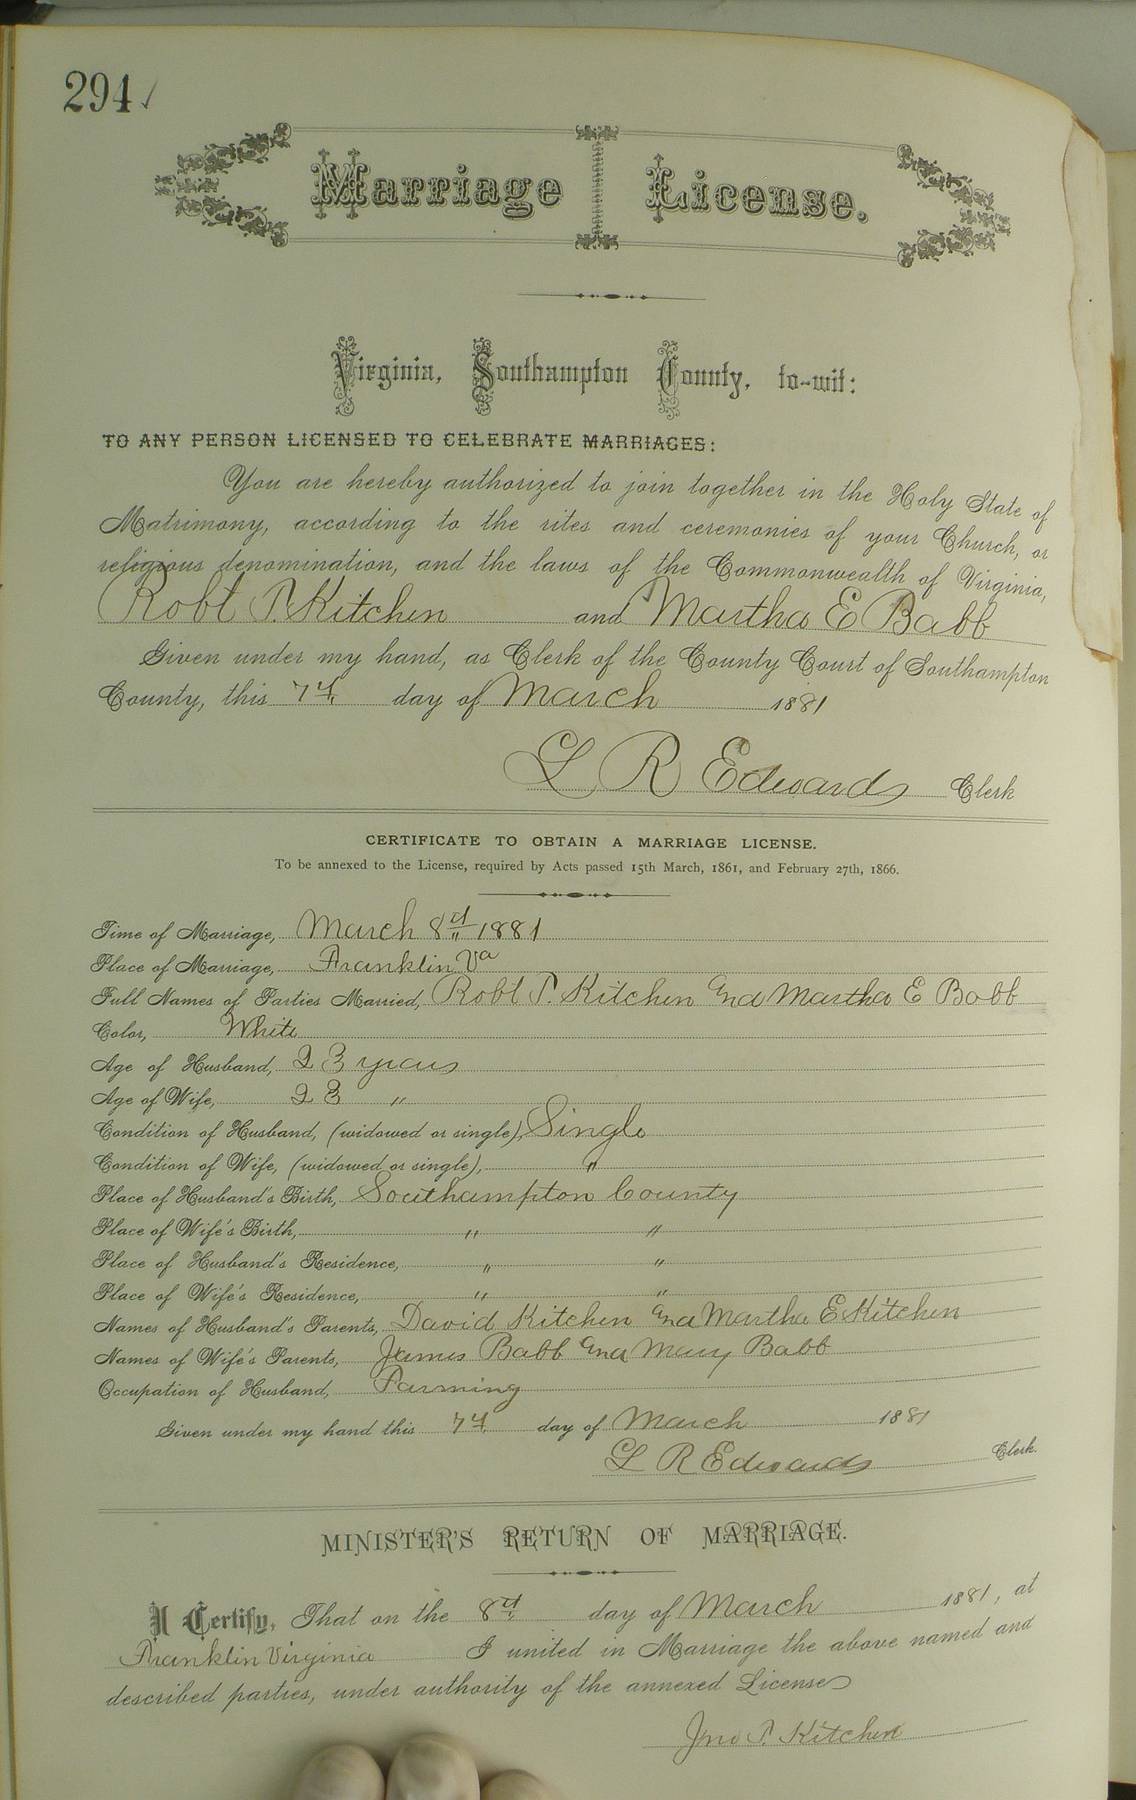 294
Marriage License.
Virginia, Southampton County, to-wit:
TO ANY PERSON LICENSED TO CELEBRATE MARRIAGES:
You are hereby authorized to join together in the Holy State of
Matrimony, according to the rites and ceremonies of your Church, or
religious denomination, and the laws of the Commonwealth of Virginia,
Robt P. Kitchen and Martha E Babb
Given under my hand, as Clerk of the County Court of Southampton
County, this 7th day of March 1881
L R Edwards Clerk
CERTIFICATE TO OBTAIN A MARRIAGE LICENSE.
To be annexed to the License, required by Acts passed 15th March, 1861, and February 27th, 1866.
Time of Marriage, March 8th 1881
Place of Marriage, Franklin Va
Full Names of Parties Married, Robt P. Kitchen and Martha E Babb
Color, White
Age of Husband, 23 years
Age of Wife, 23 "
Condition of Husband, (widowed or single), Single
Condition of Wife, (widowed or single), "
Place of Husband's Birth, Southampton County
Place of Wife's Birth, " "
Place of Husband's Residence, " "
Place of Wife's Residence, " "
Names of Husband's Parents, David Kitchen and Martha E Kitchen
Names of Wife's Parents, James Babb and Mary Babb
Occupation of Husband, Farming
Given under my hand this 7th day of March 1881
L R Edwards Clerk.
MINISTER'S RETURN OF MARRIAGE.
I Certify, That on the 8th day of March 1881, at
Franklin Virginia I united in Marriage the above named and
described parties, under authority of the annexed License
Jno P. Kitchen